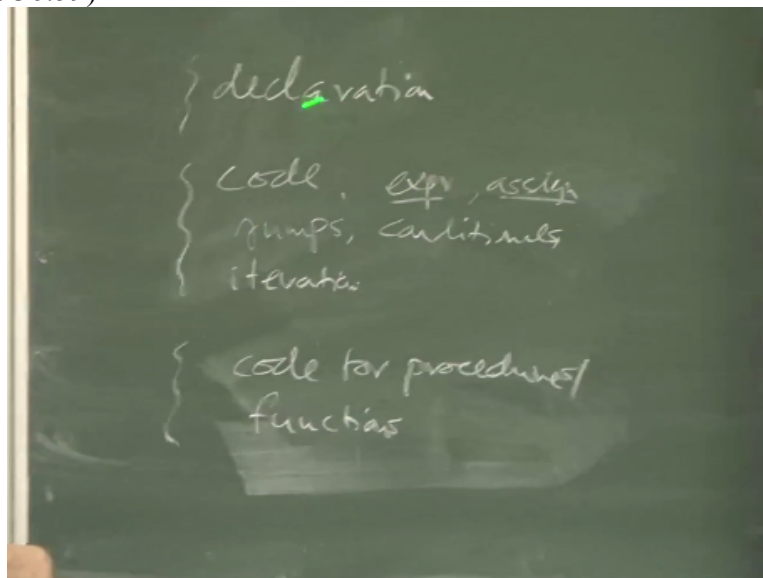 declaration
code, expr, assign
jumps, conditionals,
iteration
code for procedures/
functions